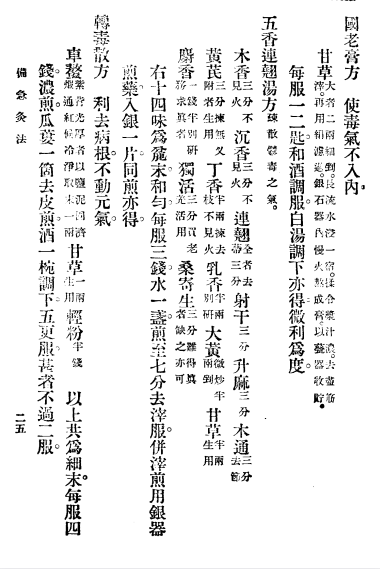 國老膏方 使毒氣不入內
甘草 大者二兩剉到長流水浸一宿揉令漿汁濃去盡筋滓再用絹濾過銀石器內慢火熬成膏以藝器收貯
每服一二匙和酒調服白湯調下亦得微利爲度
五香連翹湯方 疎散鬱毒之氣
木香三分不見火 沉香三分不見火 連翹全者去蒂三分 射干三分 升麻三分 木通三分去節
黃芪三分揀無叉附者生用 丁香半兩揀去枝不見火 乳香半兩別研 大黃微炒半兩剉 甘草半兩生用
麝香一錢半別研務求眞者 獨活三分買老羌活用 桑寄生三分難得眞者缺之亦可
右十四味爲麄末和勻每服三錢水一盞煎至七分去滓服併滓煎用銀器
煎藥入銀一片同煎亦得
轉毒散方 利去病根不動元氣
車螯紫背光厚者以鹽泥固濟煅通紅候冷淨取末一兩 甘草一兩生用 輕粉半錢 以上共爲細末每服四
錢濃煎瓜蔞一箇去皮煎酒一椀調下五更服甚者不過二服
備急灸法 二五